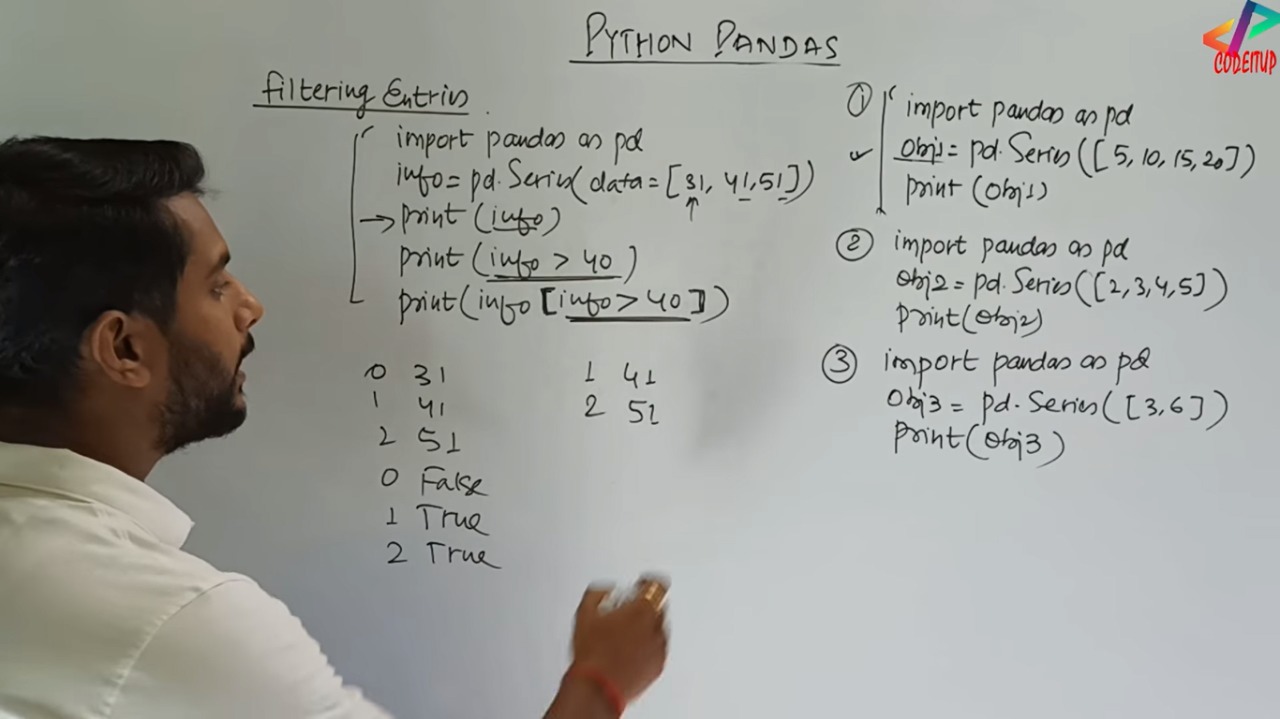 PYTHON PANDAS
CODEITUP
Filtering Entries
import pandas as pd
info = pd.Series(data = [31, 41, 51])
print (info)
print (info > 40)
print (info [info > 40])
0 31
1 41
2 51
0 False
1 True
2 True
1 41
2 51
① import pandas as pd
obj1 = pd.Series([5, 10, 15, 20])
print (obj1)
② import pandas as pd
obj2 = pd.Series([2, 3, 4, 5])
print (obj2)
③ import pandas as pd
obj3 = pd.Series([3, 6])
print (obj3)